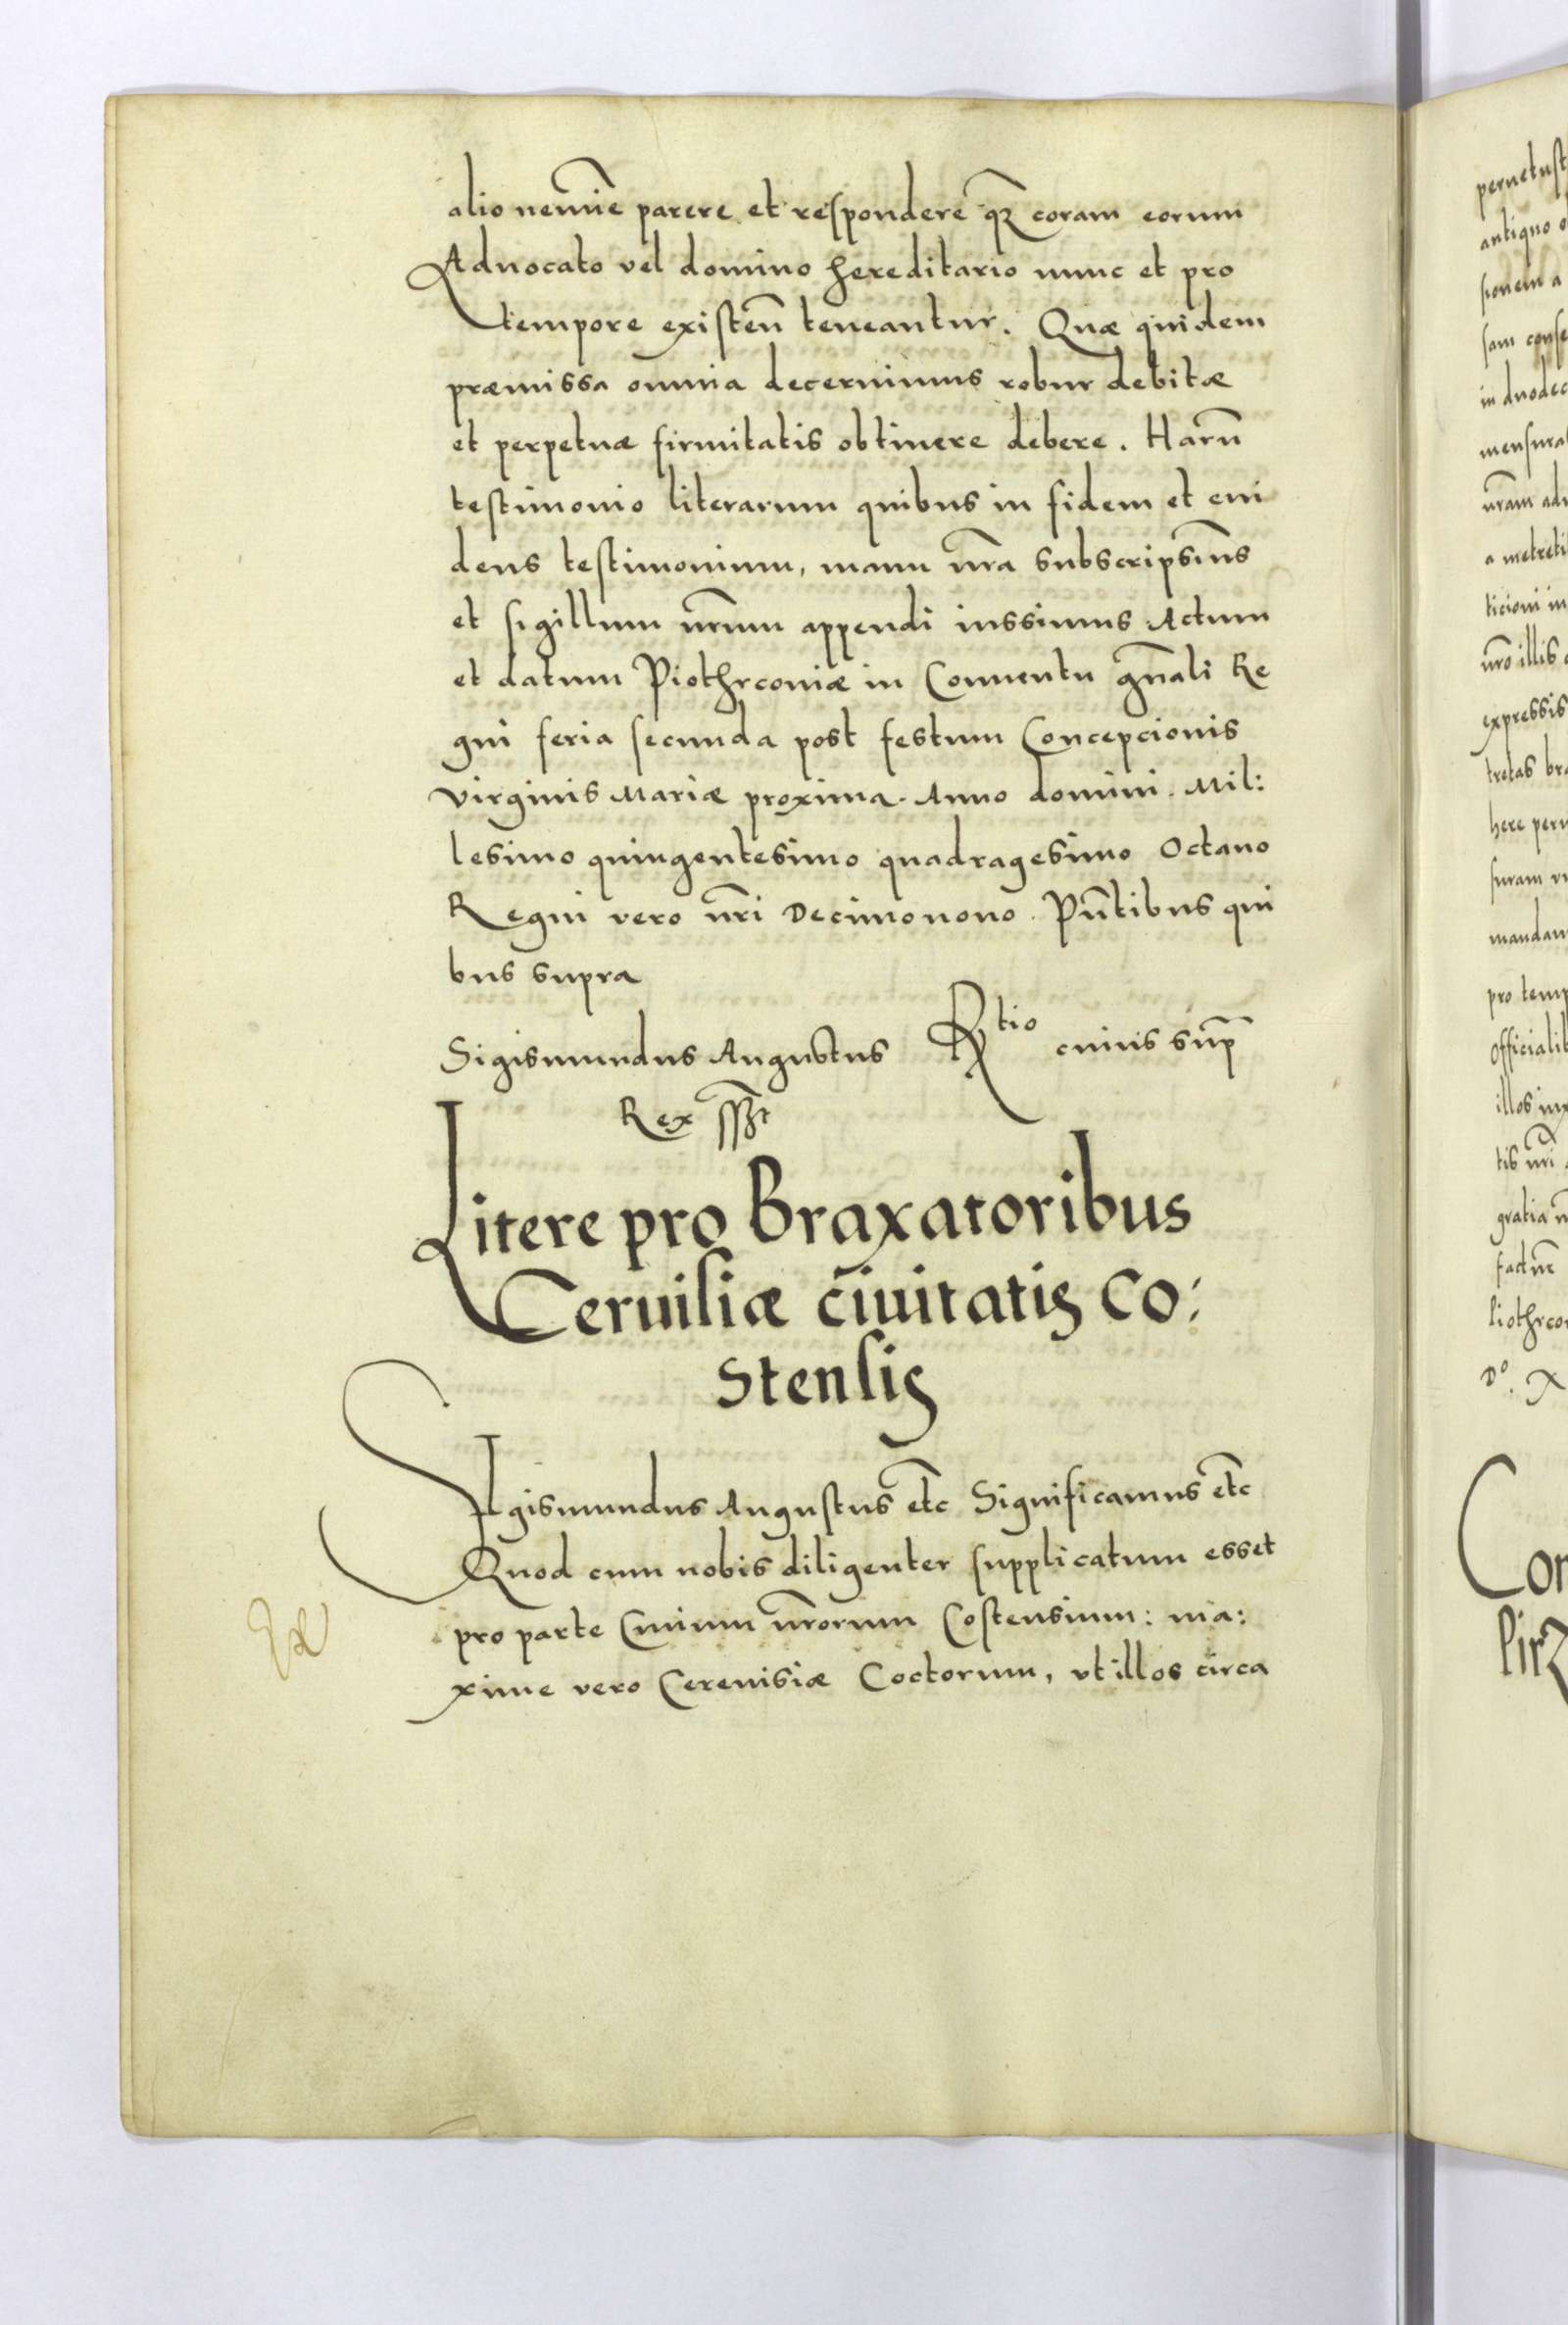 alio nemīe parere et respondere qꝫ coram eorum
Aduocato vel domino hereditario nunc et pro
tempore existen̄ teneantur. Quæ quidem
præmissa omnia decernimus robur debitæ
et perpetuæ firmitatis obtinere debere. Harū
testimonio literarum quibus in fidem et eui
dens testimonium, manu nr̄a subscripsim̄s
et sigillum nr̄um appendi iussimus Actum
et datum Piothrconiæ in Conuentu gn̄ali Re
gni feria secunda post festum Concepcionis
virginis Mariæ proxima. Anno domini. Mil:
lesimo quingentesimo quadragesimo Octauo
Regni vero nr̄i Decimonono. Pn̄tibus qui
bus supra
Sigismundus Augustus Rtio cuius sup̄
Rex sszt
Litere pro Braxatoribus
Ceruisiæ ciuitatis Co:
stensis
SIgismundus Augustus etc̄ Significamus etc̄
Quod cum nobis diligenter supplicatum esset
pro parte Ciuium nr̄orum Costensium: ma:
xime vero Cereuisiæ Coctorum, vt illos circa
peruetust
antiquo
sionem a
sam conse
in duodec
mensura
nr̄am adu
a metreti
ticioni in
nr̄o illis
expressis
tretas bra
here peru
suram
mandam
pro temp
officialib
illos
tis nr̄i
gratia
factūe
liothrcon
Do.
Con